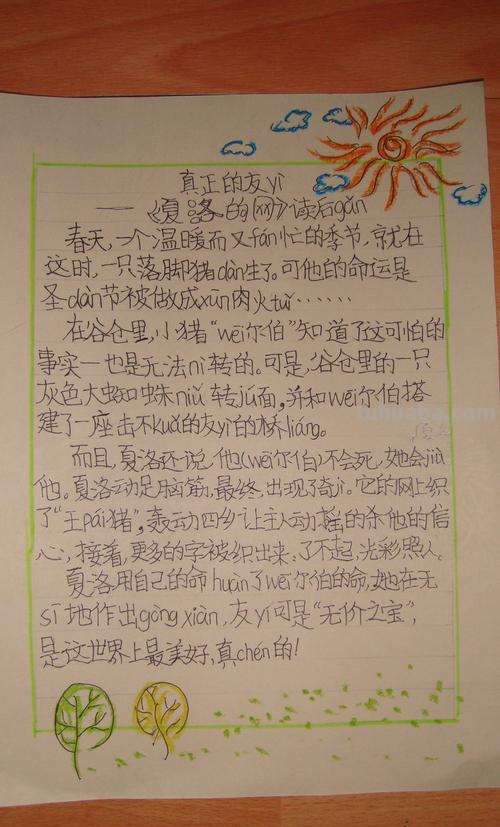 真正的友yì
——《夏洛的网》读后gǎn
春天,一个温暖而又fán忙的季节,就在
这时,一只落脚猪dàn生了。可他的命运是
圣dàn节被做成xūn肉火tuǐ······
在谷仓里,小猪“wēi尔伯”知道了这可怕的
事实一也是无法nì转的。可是,谷仓里的一只
灰色大蜘蛛niǔ转jú面,并和wēi尔伯搭
建了一座击不kuǎ的友yì的桥liáng。
而且,夏洛还说,他(wēi尔伯)不会死,她会jiù
他。夏洛动足脑筋,最终,出现了奇jì。它的网上织
了“王pái猪”,轰动四乡,让主人动摇的杀他的信
心,接着,更多的字被织出来、了不起、光彩照人。
夏洛用自己的命huàn了wēi尔伯的命,她在无
sī地作出gòng xiàn,友yì可是“无价之宝”,
是这世界上最美好,真chén的!
tuhuaba.com